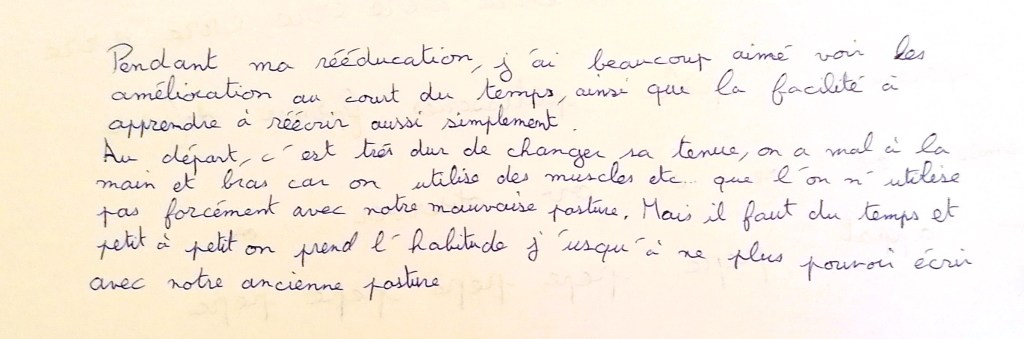 Pendant ma rééducation, j'ai beaucoup aimé voir les
amélioration au court du temps, ainsi que la facilité à
apprendre à réécrir aussi simplement.
Au départ, c'est très dur de changer sa tenue, on a mal à la
main et bras car on utilise des muscles etc... que l'on n'utilise
pas forcément avec notre mauvaise posture. Mais il faut du temps et
petit à petit on prend l'habitude j'usqu'à ne plus pouvoir écrir
avec notre ancienne posture